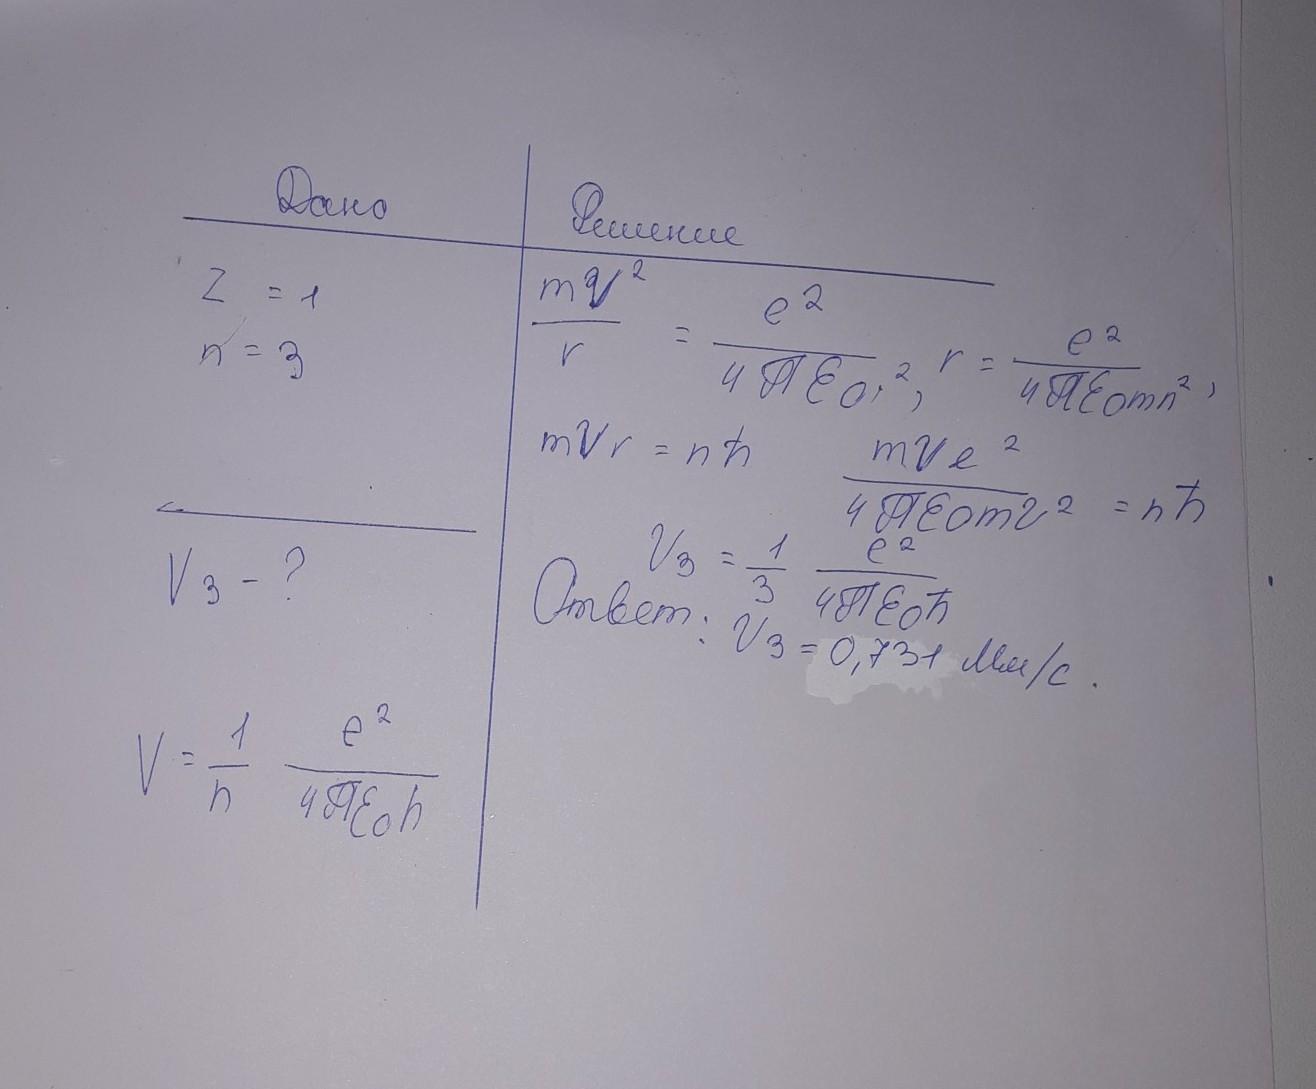 Дано
Z = 1
n = 3
V₃ - ?
V = 1/n e²/4πε₀ħ
Решение
mV²/r = e²/4πε₀r², r = e²/4πε₀mn²,
mVr = nħ mVe²/4πε₀mv² = nħ
V₃ = 1/3 e²/4πε₀ħ
Ответ: V₃ = 0,731 Мм/с.